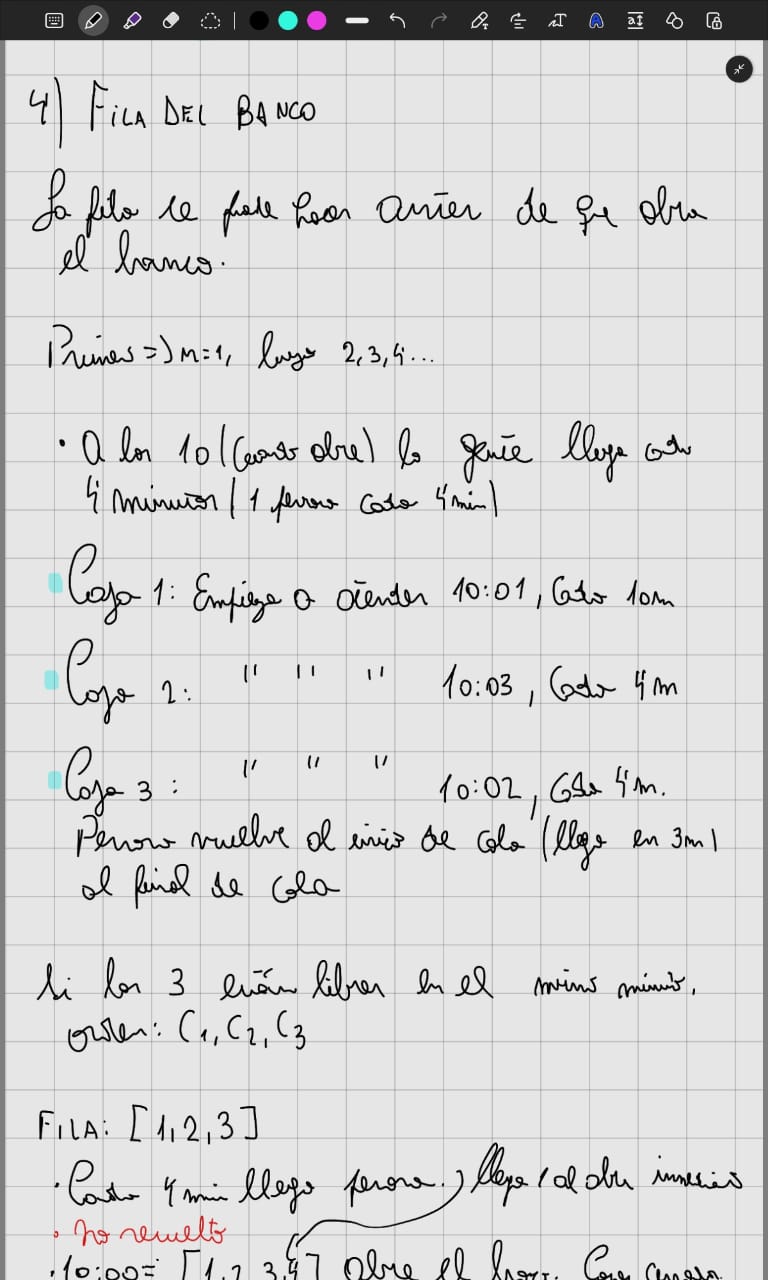 4) FILA DEL BANCO
La fila se puede hacer antes de que abra
el banco.
Primero => n=1, luego 2,3,4...
• A las 10 (cuando abre) la gente llega cada
4 minutos (1 persona cada 4 min)
Caja 1: Empieza a atender 10:01, cada 10m
Caja 2: " " " 10:03, cada 4m
Caja 3: " " " 10:02, cada 4m.
Persona vuelve al inicio de cola (llega en 3m)
al final de cola
Si las 3 están libres en el mismo minuto,
orden: C1, C2, C3
FILA: [1,2,3]
• Cada 4 min llega persona. llega 1 al abrir
• No resuelto
• 10:00= [1,2,3,4] Abre el banco.